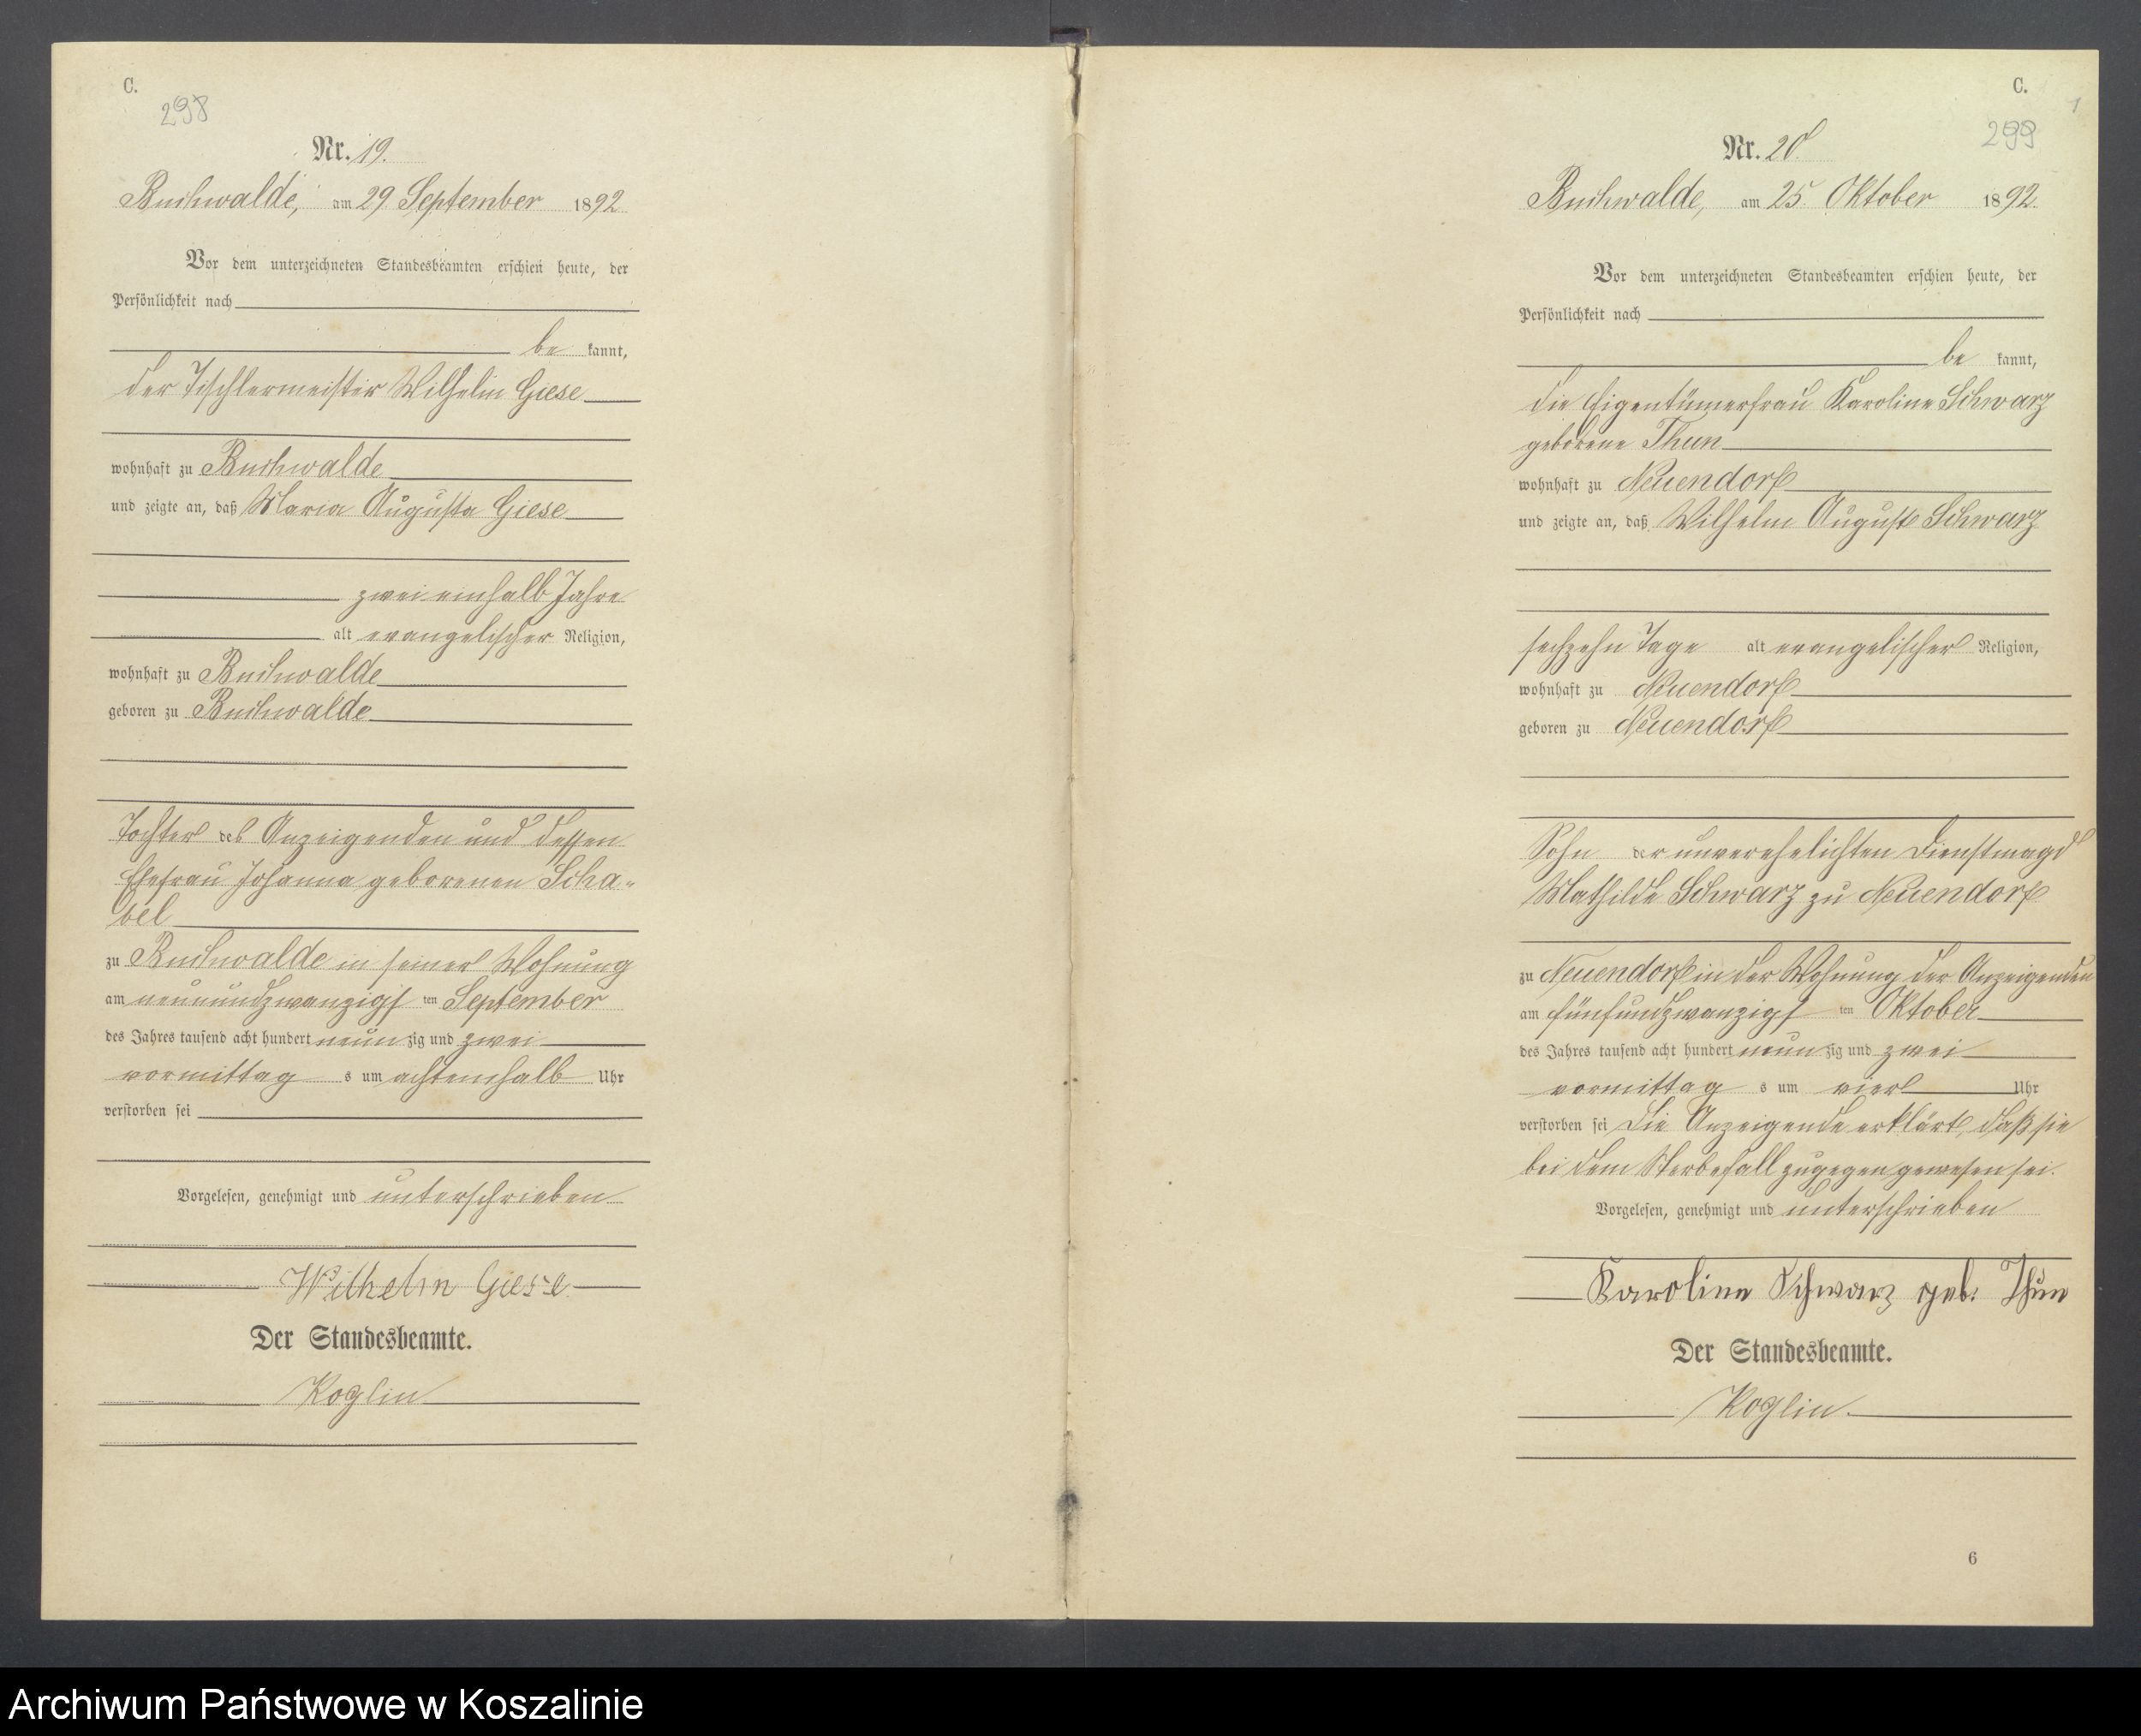 C.
298
Nr. 19.
Buchwalde, am 29 September 1892
Vor dem unterzeichneten Standesbeamten erschien heute, der
Persönlichkeit nach
be kannt,
der Tischlermeister Wilhelm Giese
wohnhaft zu Buchwalde
und zeigte an, daß Maria Augusta Giese
zwei einhalb Jahre
alt evangelischer Religion,
wohnhaft zu Buchwalde
geboren zu Buchwalde
Tochter des Anzeigenden und dessen
Ehefrau Johanna geborenen Scha-
bel
zu Buchwalde in seiner Wohnung
am neunundzwanzigsten September
des Jahres tausend acht hundert neunzig und zwei
vormittags um achteinhalb Uhr
verstorben sei
Vorgelesen, genehmigt und unterschrieben
Wilhelm Giese
Der Standesbeamte.
Koglin
C.
1
299
Nr. 20.
Buchwalde, am 25 Oktober 1892.
Vor dem unterzeichneten Standesbeamten erschien heute, der
Persönlichkeit nach
be kannt,
die Eigentümerfrau Karoline Schwarz
geborene Thun
wohnhaft zu Neuendorf
und zeigte an, daß Wilhelm August Schwarz
sechzehn Tage alt evangelischer Religion,
wohnhaft zu Neuendorf
geboren zu Neuendorf
Sohn der unverehelichten Dienstmagd
Mathilde Schwarz zu Neuendorf
zu Neuendorf in der Wohnung der Anzeigenden
am fünfundzwanzigsten Oktober
des Jahres tausend acht hundert neunzig und zwei
vormittags um vier Uhr
verstorben sei Die Anzeigende erklärt, daß sie
bei dem Sterbefall zugegen gewesen sei.
Vorgelesen, genehmigt und unterschrieben
Karoline Schwarz geb. Thun
Der Standesbeamte.
Koglin.
6
Archiwum Państwowe w Koszalinie